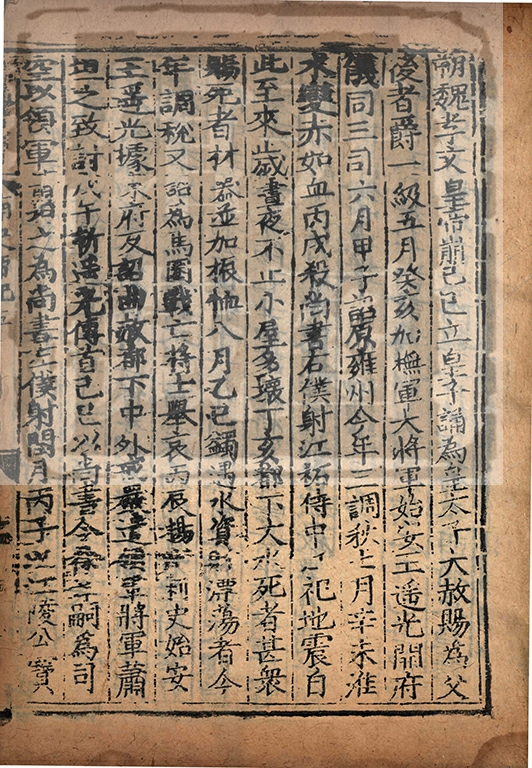 朔魏孝文皇帝崩己巳立皇子誦為皇太子大赦賜為父
後者爵一級五月癸亥加撫軍大將軍始安王遙光開府
儀同三司六月甲子詔原雍州今年三調秋七月辛未淮
水變赤如血丙戌殺尚書右僕射江祏侍中江祀地震自
此至來歲晝夜不止小屋多壞丁亥都下大水死者甚衆
賜死者材器並加振恤八月乙巳蠲遇水資財漂蕩者今
年調稅又詔為馬圈戰亡將士舉哀丙辰揚州刺史始安
王遙光據東府反詔曲赦都下中外戒嚴遣領軍將軍蕭
坦之致討戊午斬遙光傳首己巳以尚書令徐孝嗣為司
空以領軍蕭坦之為尚書左僕射閏月丙子以江陵公寶